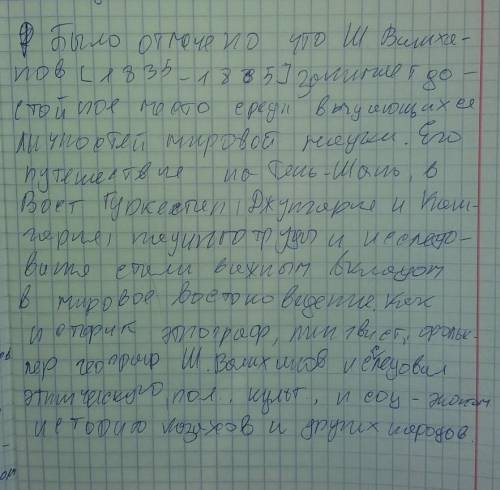 Было отмечено что Ш Валиха-
нов [1835-1865] занимает до-
стойное место среди выдающихся
личностей мировой науки. Его
путешествие на Тянь-Шань, в
Вост Туркестан, Джунгария и Каш-
гария, научные труды и исследо-
вания стали важным вкладом
в мировое востоковедение, как
историк этнограф, лингвист, фольк-
лер географ Ш. Валиханов исследовал
этническую, пол, культ, и соц-эконом
историю казахов и других народов.